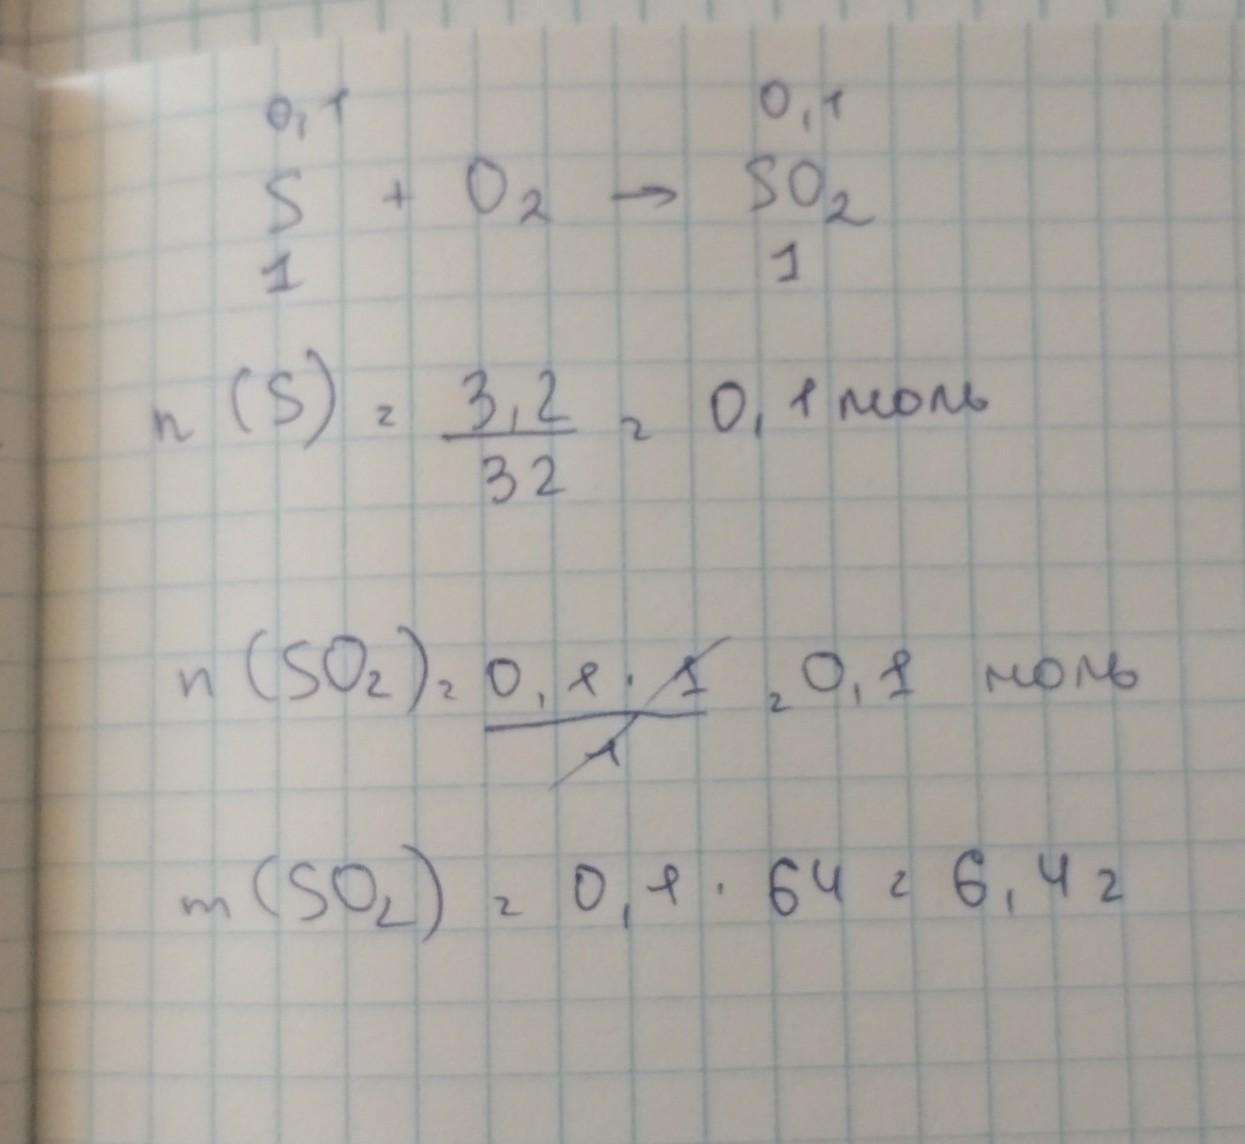 0,1 0,1
S + O₂ → SO₂
1 1
n (S) = 3,2 / 32 = 0,1 моль
n (SO₂) = 0,1 · 1 / 1 = 0,1 моль
m (SO₂) = 0,1 · 64 = 6,4 г